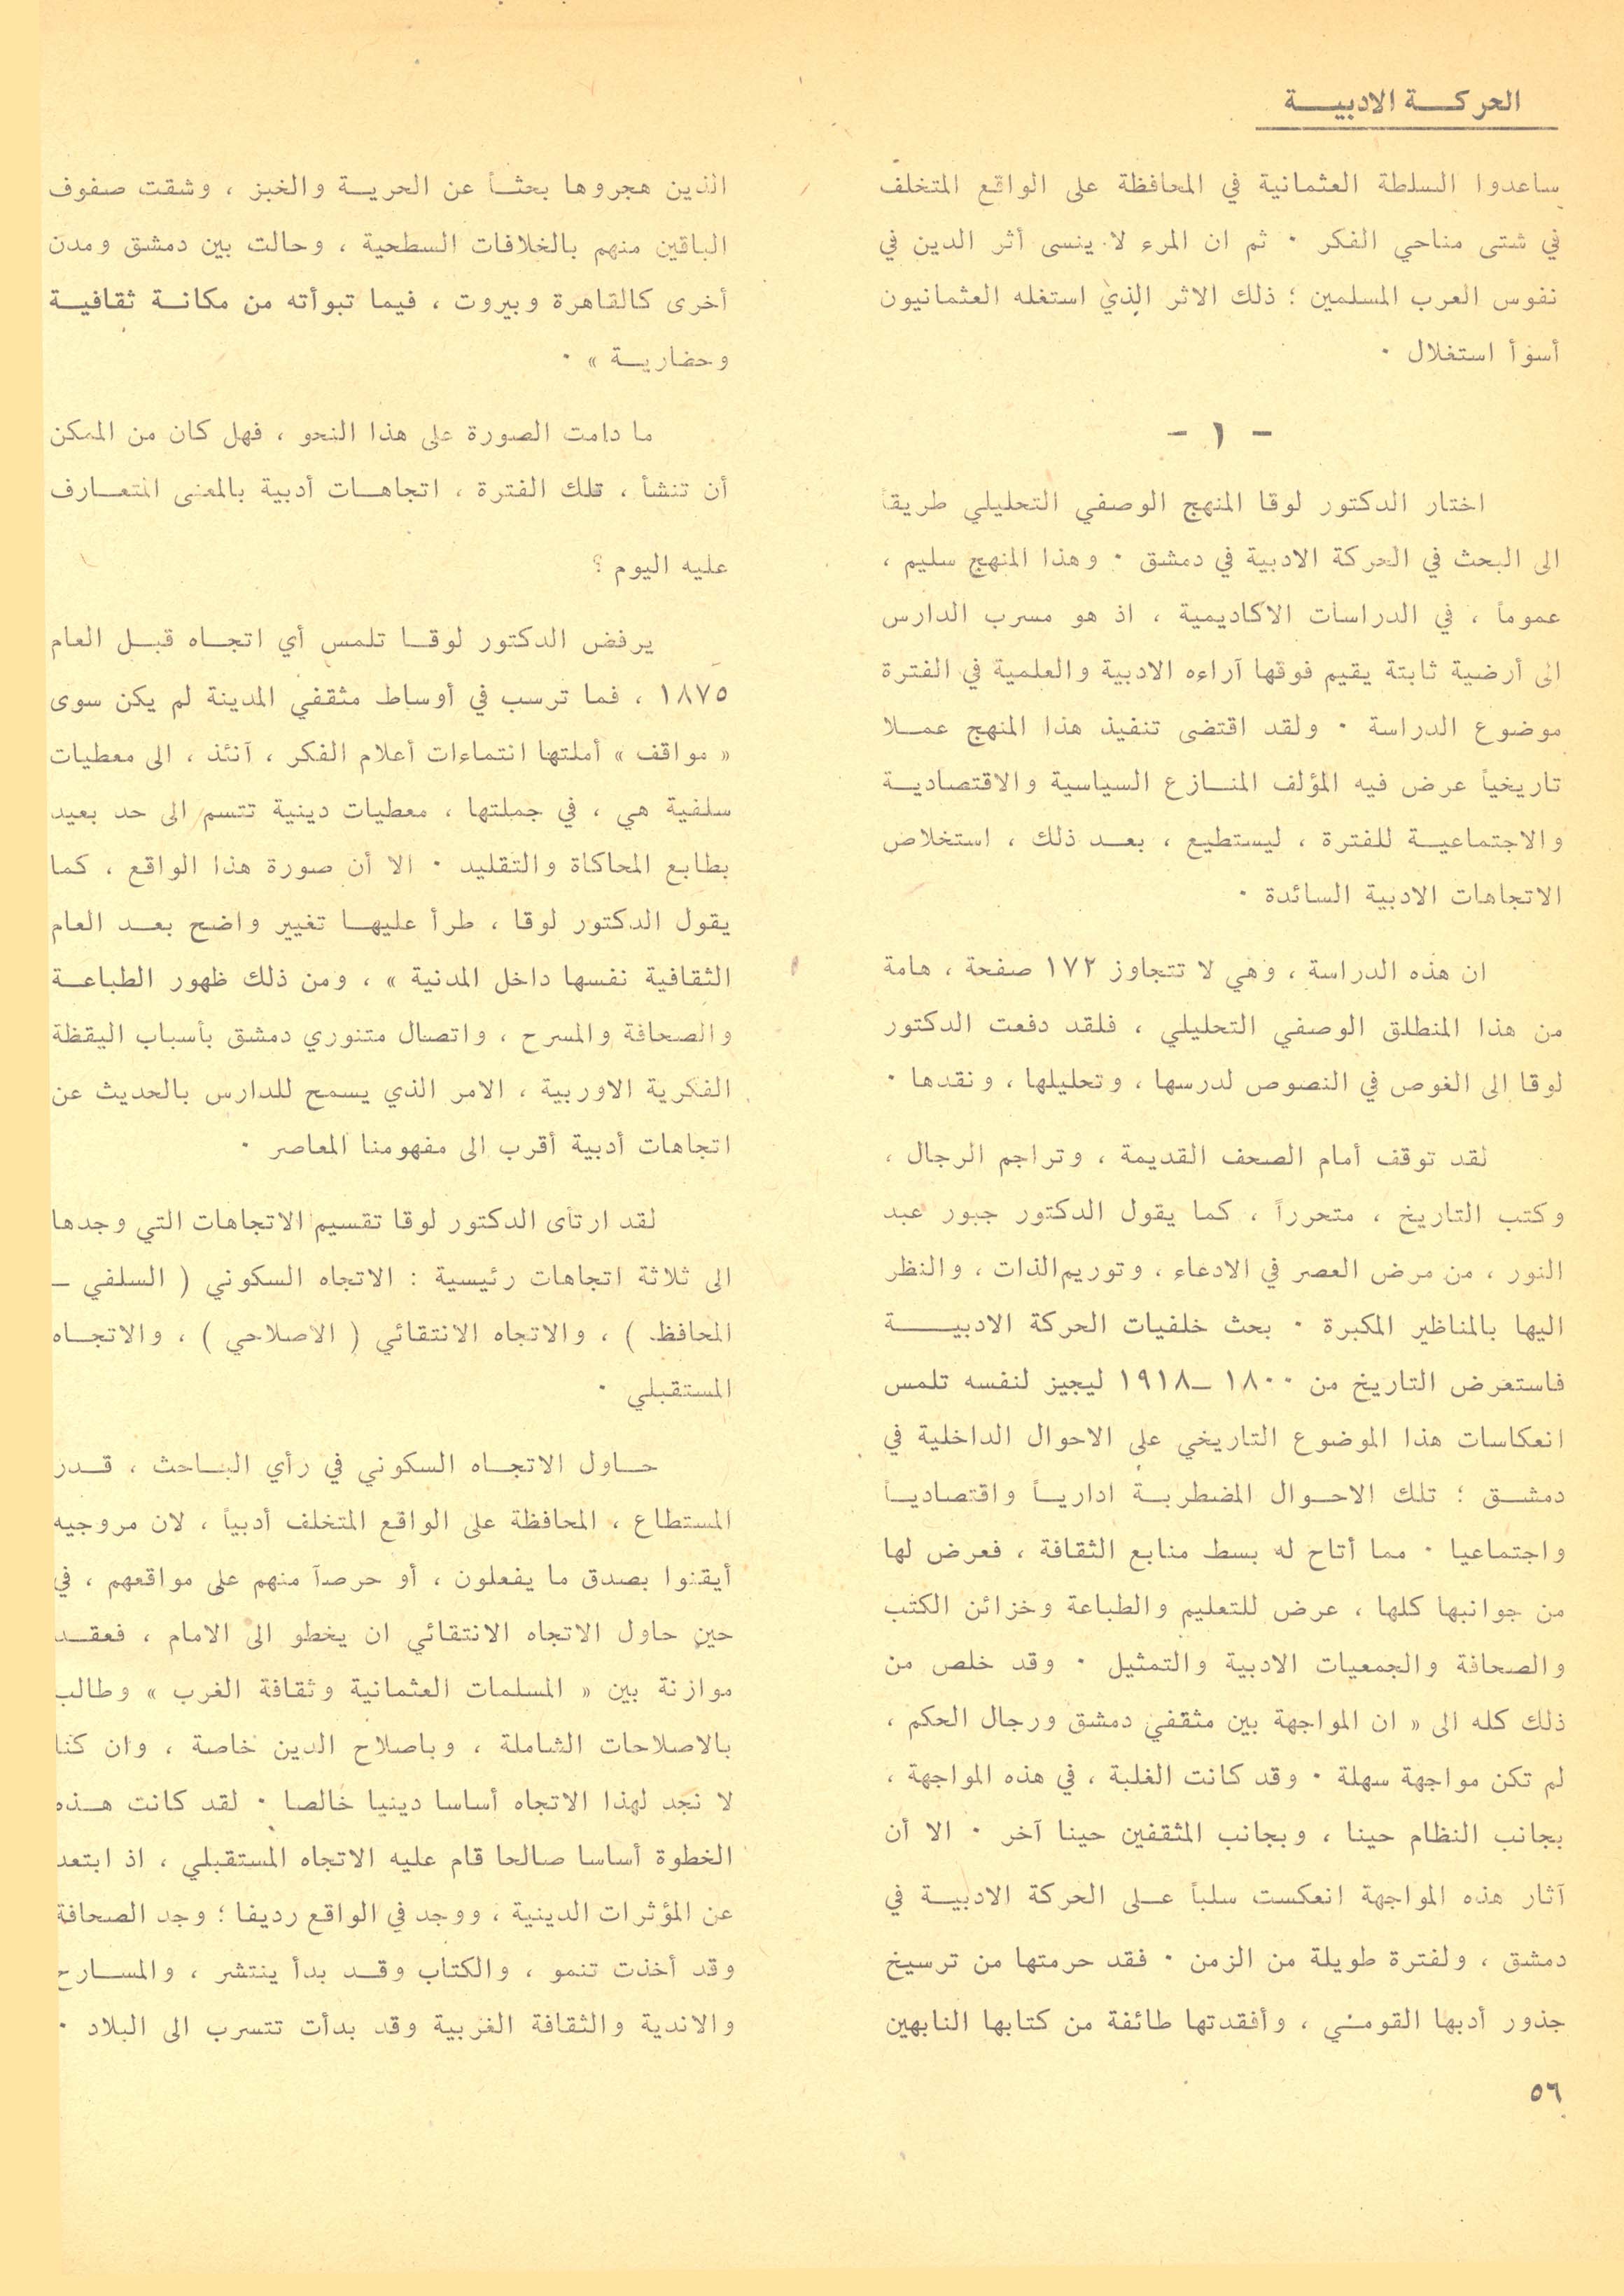 الحركة الادبية
ساعدوا السلطة العثمانية في المحافظة على الواقع المتخلف
في شتى مناحي الفكر ٠ ثم ان المرء لا ينسى أثر الدين في
نفوس العرب المسلمين ؛ ذلك الاثر الذي استغله العثمانيون
أسوأ استغلال ٠
- ١ -
اختار الدكتور لوقا المنهج الوصفي التحليلي طريقاً
الى البحث في الحركة الادبية في دمشق ٠ وهذا المنهج سليم ،
عموماً ، في الدراسات الاكاديمية ، اذ هو مسرب الدارس
الى أرضية ثابتة يقيم فوقها آراءه الادبية والعلمية في الفترة
موضوع الدراسة ٠ ولقد اقتضى تنفيذ هذا المنهج عملا
تاريخياً عرض فيه المؤلف المنازع السياسية والاقتصادية
والاجتماعية للفترة ، ليستطيع ، بعد ذلك ، استخلاص
الاتجاهات الادبية السائدة ٠
ان هذه الدراسة ، وهي لا تتجاوز ١٧٢ صفحة ، هامة
من هذا المنطلق الوصفي التحليلي ، فلقد دفعت الدكتور
لوقا الى الغوص في النصوص لدرسها ، وتحليلها ، ونقدها ٠
لقد توقف أمام الصحف القديمة ، وتراجم الرجال ،
وكتب التاريخ ، متحرراً ، كما يقول الدكتور جبور عبد
النور ، من مرض العصر في الادعاء ، وتوريم الذات ، والنظر
اليها بالمناظير المكبرة ٠ بحث خلفيات الحركة الادبية
فاستعرض التاريخ من ١٨٠٠ ــ ١٩١٨ ليجيز لنفسه تلمس
انعكاسات هذا الموضوع التاريخي على الاحوال الداخلية في
دمشق ؛ تلك الاحوال المضطربة ادارياً واقتصادياً
واجتماعيا ٠ مما أتاح له بسط منابع الثقافة ، فعرض لها
من جوانبها كلها ، عرض للتعليم والطباعة وخزائن الكتب
والصحافة والجمعيات الادبية والتمثيل ٠ وقد خلص من
ذلك كله الى « ان المواجهة بين مثقفي دمشق ورجال الحكم ،
لم تكن مواجهة سهلة ٠ وقد كانت الغلبة ، في هذه المواجهة ،
بجانب النظام حينا ، وبجانب المثقفين حينا آخر ٠ الا أن
آثار هذه المواجهة انعكست سلباً على الحركة الادبية في
دمشق ، ولفترة طويلة من الزمن ٠ فقد حرمتها من ترسيخ
جذور أدبها القومي ، وأفقدتها طائفة من كتابها النابهين
الذين هجروها بحثاً عن الحرية والخبز ، وشقت صفوف
الباقين منهم بالخلافات السطحية ، وحالت بين دمشق ومدن
أخرى كالقاهرة وبيروت ، فيما تبوأته من مكانة ثقافية
وحضارية » ٠
ما دامت الصورة على هذا النحو ، فهل كان من الممكن
أن تنشأ ، تلك الفترة ، اتجاهات أدبية بالمعنى المتعارف
عليه اليوم ؟
يرفض الدكتور لوقا تلمس أي اتجاه قبل العام
١٨٧٥ ، فما ترسب في أوساط مثقفي المدينة لم يكن سوى
« مواقف » أملتها انتماءات أعلام الفكر ، آنئذ ، الى معطيات
سلفية هي ، في جملتها ، معطيات دينية تتسم الى حد بعيد
بطابع المحاكاة والتقليد ٠ الا أن صورة هذا الواقع ، كما
يقول الدكتور لوقا ، طرأ عليها تغيير واضح بعد العام
الثقافية نفسها داخل المدنية » ، ومن ذلك ظهور الطباعة
والصحافة والمسرح ، واتصال متنوري دمشق بأسباب اليقظة
الفكرية الاوربية ، الامر الذي يسمح للدارس بالحديث عن
اتجاهات أدبية أقرب الى مفهومنا المعاصر ٠
لقد ارتأى الدكتور لوقا تقسيم الاتجاهات التي وجدها
الى ثلاثة اتجاهات رئيسية : الاتجاه السكوني ( السلفي ــ
المحافظ ) ، والاتجاه الانتقائي ( الاصلاحي ) ، والاتجاه
المستقبلي ٠
حاول الاتجاه السكوني في رأي الباحث ، قدر
المستطاع ، المحافظة على الواقع المتخلف أدبياً ، لان مروجيه
أيقنوا بصدق ما يفعلون ، أو حرصاً منهم على مواقعهم ، في
حين حاول الاتجاه الانتقائي ان يخطو الى الامام ، فعقد
موازنة بين « المسلمات العثمانية وثقافة الغرب » وطالب
بالاصلاحات الشاملة ، وباصلاح الدين خاصة ، وان كنا
لا نجد لهذا الاتجاه أساسا دينيا خالصا ٠ لقد كانت هذه
الخطوة أساسا صالحا قام عليه الاتجاه المستقبلي ، اذ ابتعد
عن المؤثرات الدينية ، ووجد في الواقع رديفا ؛ وجد الصحافة
وقد أخذت تنمو ، والكتاب وقد بدأ ينتشر ، والمسارح
والاندية والثقافة الغربية وقد بدأت تتسرب الى البلاد ٠
٥٦